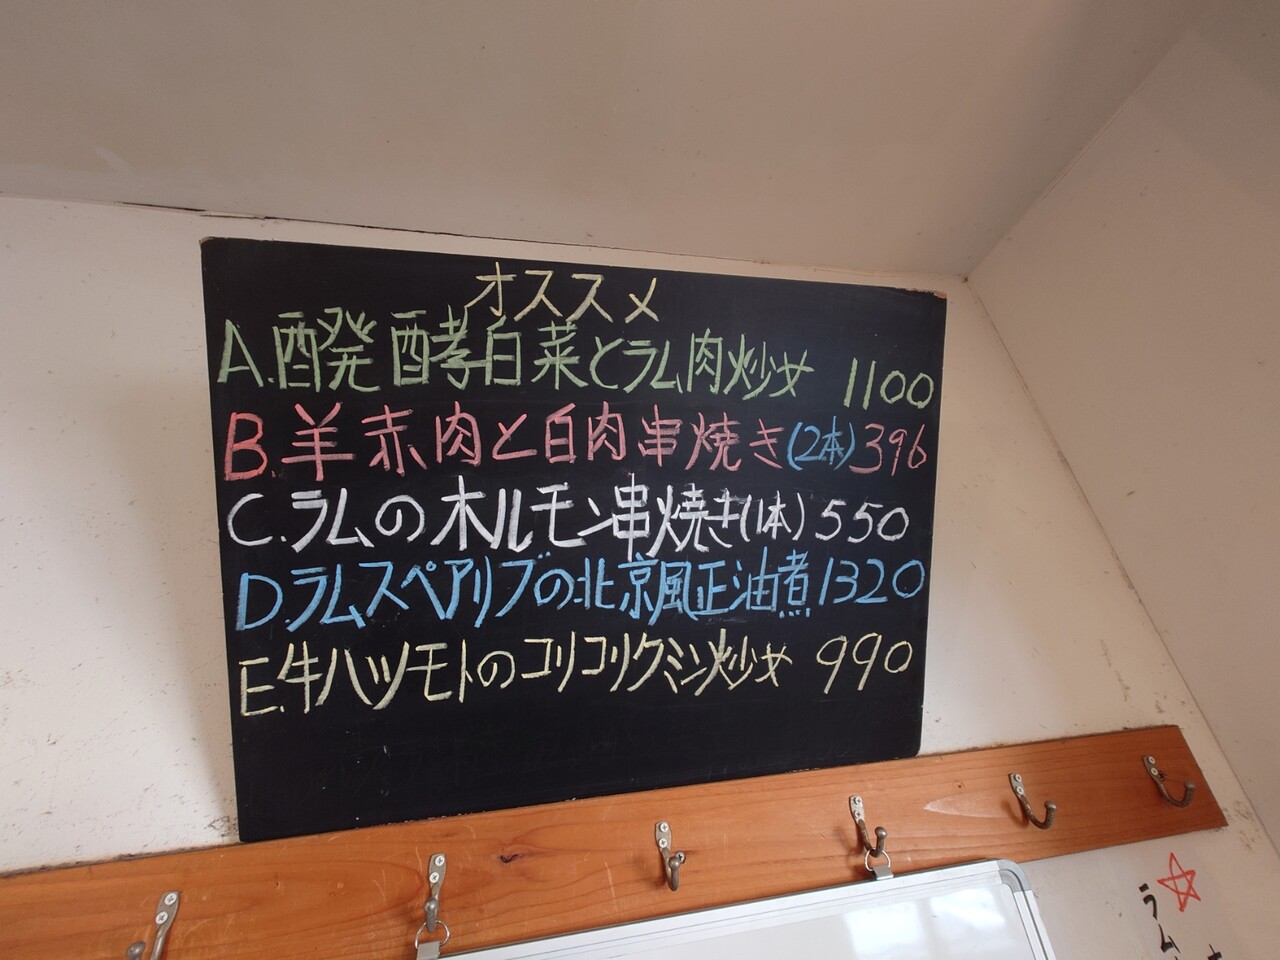 オススメ
A.醗酵白菜とラム肉炒め 1100
B.羊赤肉と白肉串焼き(2本)396
C.ラムのホルモン串焼き(1本)550
D.ラムスペアリブの北京風正油煮 1320
E.牛ハツモトのコリコリクミン炒め 990
ラム